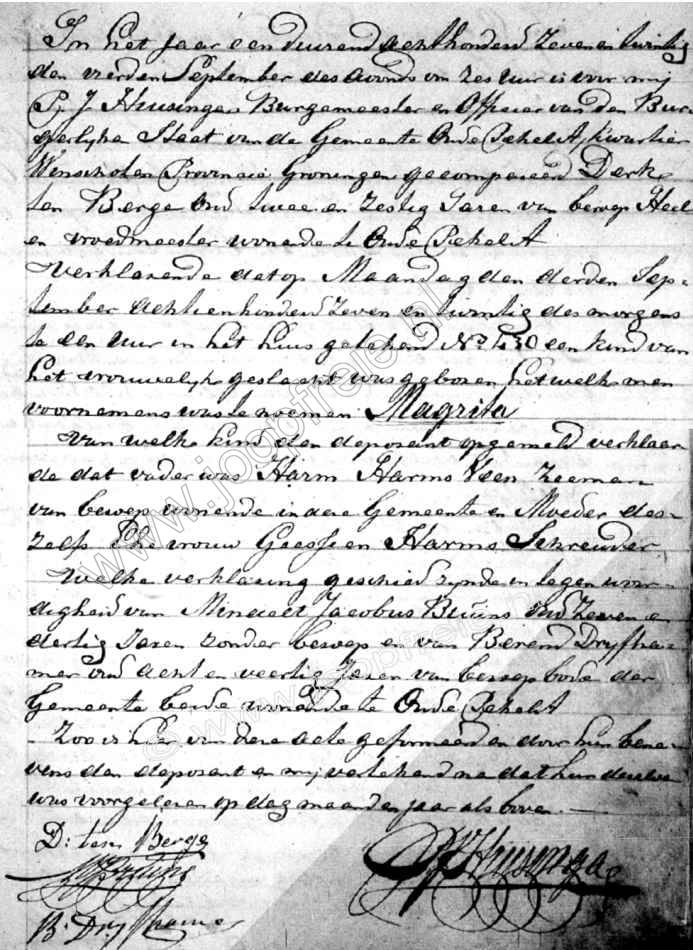 In het jaar een duizend achthonderd zeven en twintig
den vierden September des avonds om zes uur is voor mij
P. J. Huisinga Burgemeester en Officier van den Bur
gerlyke Staat van de Gemeente Oude Pekel A, kwartier
Winschoten Provincie Groningen gecompareerd Derk
ten Berge oud twee en zestig Jaren van beroep Heel
en vroedmeester wonende te Oude Pekel A
Verklarende dat op Maandag den derden Sep-
tember achtienhonderd zeven en twintig des morgens
te een uur in het huis getekend No. 430 een kind van
het vrouwelyk geslacht was geboren hetwelk men
voornemens was te noemen Magrita
Van welk kind den deposant opgemeld verklaar
de dat vader was Harm Harms Veen zeeman
van beroep wonende in deze Gemeente en Moeder des-
zelfs Ehevrouw Geessien Harms Schreuder
Welke verklaring geschied zynde in tegenwoor-
digheid van Bruins oud zeven en
dertig Jaren zonder beroep en van Berend Dryfha-
mer oud acht en veertig Jaren van beroep bode der
Gemeente beide wonende te Oude Pekel A
Zoo is hier van deze acte geformeerd en door hun bene-
vens den deposant en mij vertekend na dat hun dezelve
was voorgelezen op dag maand en jaar als boven.
D: ten Berge
Bruins
PJ Huisinga
B: Dryfhamer
www.jogpfreie.nl